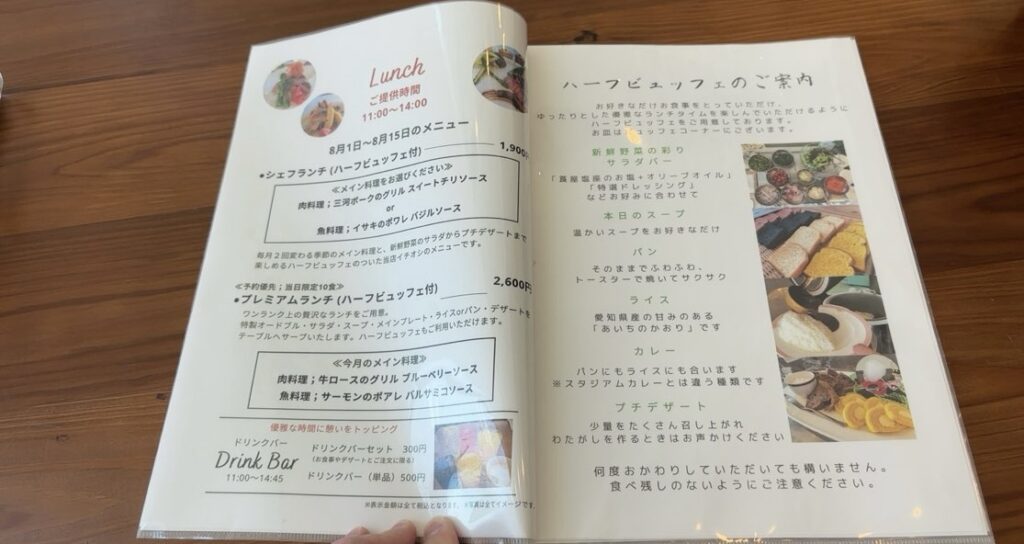 Lunch
ご提供時間
11:00〜14:00
8月1日〜8月15日のメニュー
●シェフランチ (ハーフビュッフェ付) 1,900
≪メイン料理をお選びください≫
肉料理;三河ポークのグリル スイートチリソース
or
魚料理;イサキのポワレ バジルソース
毎月2回変わる季節のメイン料理と、新鮮野菜のサラダからプチデザートまで
楽しめるハーフビュッフェのついた当店イチオシのメニューです。
≪予約優先;当日限定10食≫
●プレミアムランチ (ハーフビュッフェ付) 2,600円
ワンランク上の贅沢なランチをご用意。
特製オードブル・サラダ・スープ・メインプレート・ライスorパン・デザートを
テーブルへサーブいたします。ハーフビュッフェもご利用いただけます。
≪今月のメイン料理≫
肉料理;牛ロースのグリル ブルーベリーソース
魚料理;サーモンのポアレ バルサミコソース
優雅な時間に憩いをトッピング
ドリンクバー
Drink Bar
11:00〜14:45
ドリンクバーセット 300円
(お食事やデザートとご注文に限る)
ドリンクバー (単品) 500円
※表示金額は全て税込となります。※写真は全てイメージです
ハーフビュッフェのご案内
お好きなだけお食事をとっていただけ、
ゆったりとした優雅なランチタイムを楽しんでいただけるように
ハーフビュッフェをご用意しております。
お皿はビュッフェコーナーにございます。
新鮮野菜の彩り
サラダバー
塩座のお塩+オリーブオイル」
「特選ドレッシング」
などお好みに合わせて
本日のスープ
温かいスープをお好きなだけ
パン
そのままでふわふわ、
トースターで焼いてサクサク
ライス
愛知県産の甘みのある
「あいちのかおり」です
カレー
パンにもライスにも合います
※スタジアムカレーとは違う種類です
プチデザート
少量をたくさん召し上がれ
わたがしを作るときはお声かけください
何度おかわりしていただいても構いません。
食べ残しのないようにご注意ください。